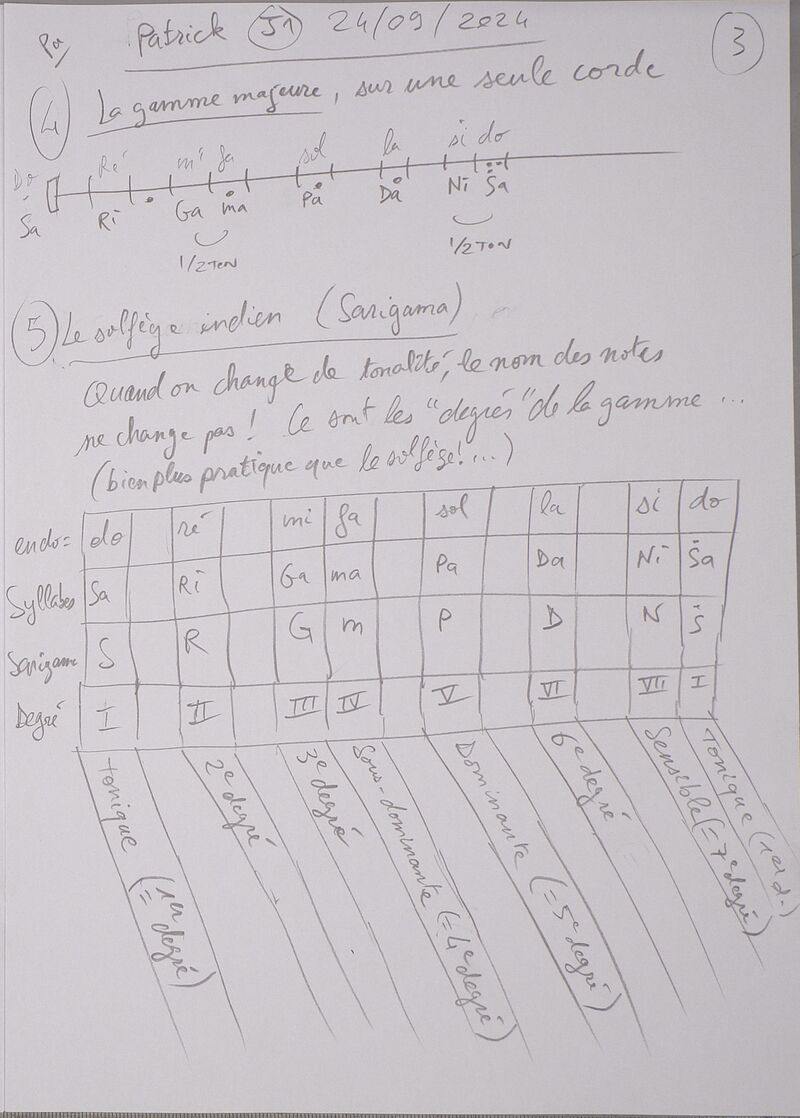 Pa
Patrick J1 24/09/2024
3
4 La gamme majeure, sur une seule corde
Do Ré mi fa sol la si do
Sa Ri Ga ma Pa Da Ni Ṡa
1/2 TON 1/2 TON
5 Le solfège indien (Sarigama)
Quand on change de tonalité, le nom des notes
ne change pas! Ce sont les "degrés" de la gamme ...
(bien plus pratique que le solfège!...)
en do = do ré mi fa sol la si do
Syllabes Sa Ri Ga ma Pa Da Ni Ṡa
Sarigama S R G m P D N Ṡ
Degré I II III IV V VI VII I
tonique (= 1er degré)
2e degré
3e degré
Sous-dominante (= 4e degré)
Dominante (= 5e degré)
6e degré
Sensible (= 7e degré)
Tonique (1er d.)